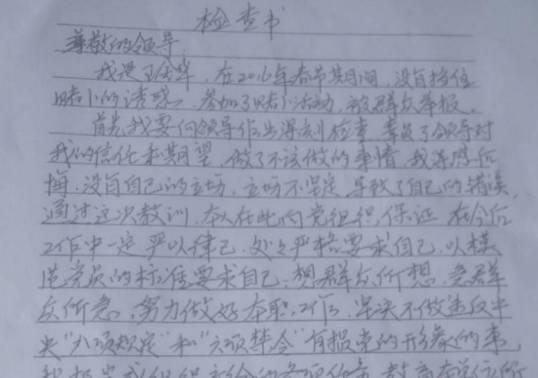 检查书
尊敬的领导
我是王俊华，在2016年春节期间，没有挡住
赌博的诱惑，参加了赌博活动，被群众举报。
首先我要向领导作出深刻检查，辜负了领导对
我的信任和期望，做了不该做的事情，我深感后
悔，没有自己的立场，立场不坚定，导致了自己的错误，
通过这次教训，本人在此向党组织保证，在今后
工作中一定严以律己，处处严格要求自己，以模
范党员的标准要求自己，想群众所想，急群
众所急，努力做好本职工作，坚决不做违反中
央“八项规定”和“六项禁令”有损党的形象的事，